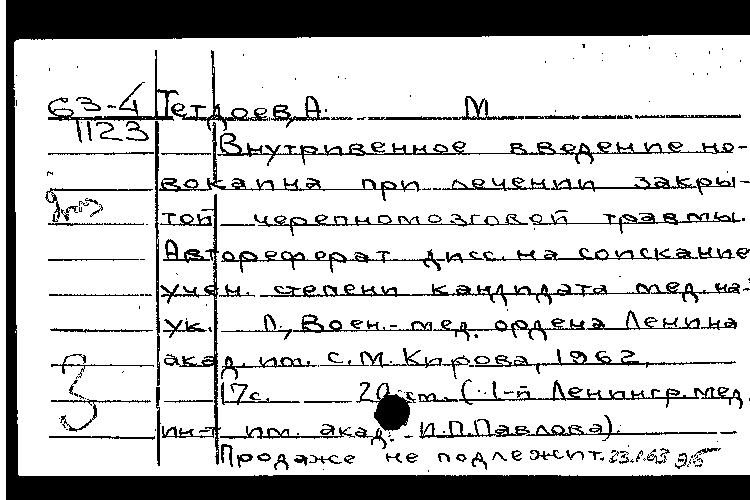 63-4 Тетдоев, А. М
1123
Внутривенное введение но-
вокаина при лечении закры-
той черепномозговой травмы.
Автореферат дисс. на соискание
учен. степени кандидата мед. на-
ук. Л., Воен.-мед. ордена Ленина
акад. им. С.М. Кирова, 1962,
17с. 20 см. (1-й Ленингр. мед.
3
ин-т им. акад. И.П.Павлова).
Продаже не подлежит. 23.1.63